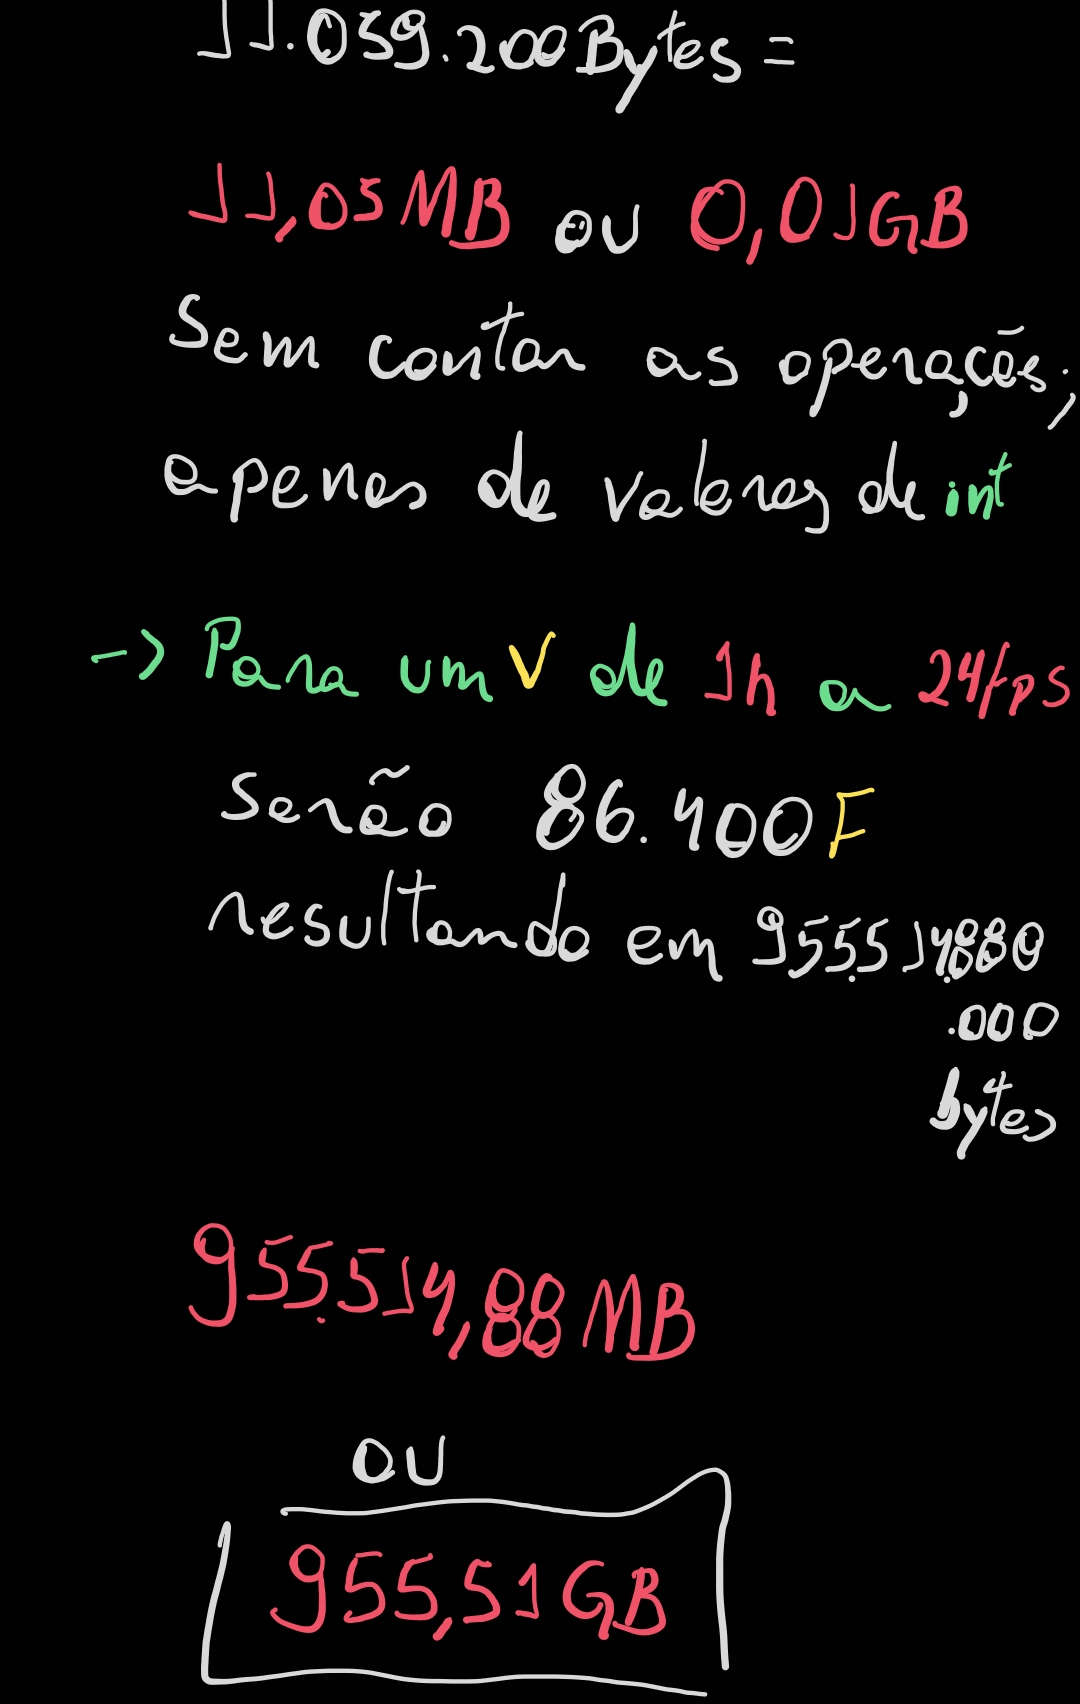 11.059.200Bytes =
11,05MB ou 0,01GB
Sem contar as operaçõs;
apenas de valores de int
-> Para um V de 1h a 24fps
Serão 86.400F
resultando em 955.514.880
.000
bytes
955.514,88MB
ou
955,51GB